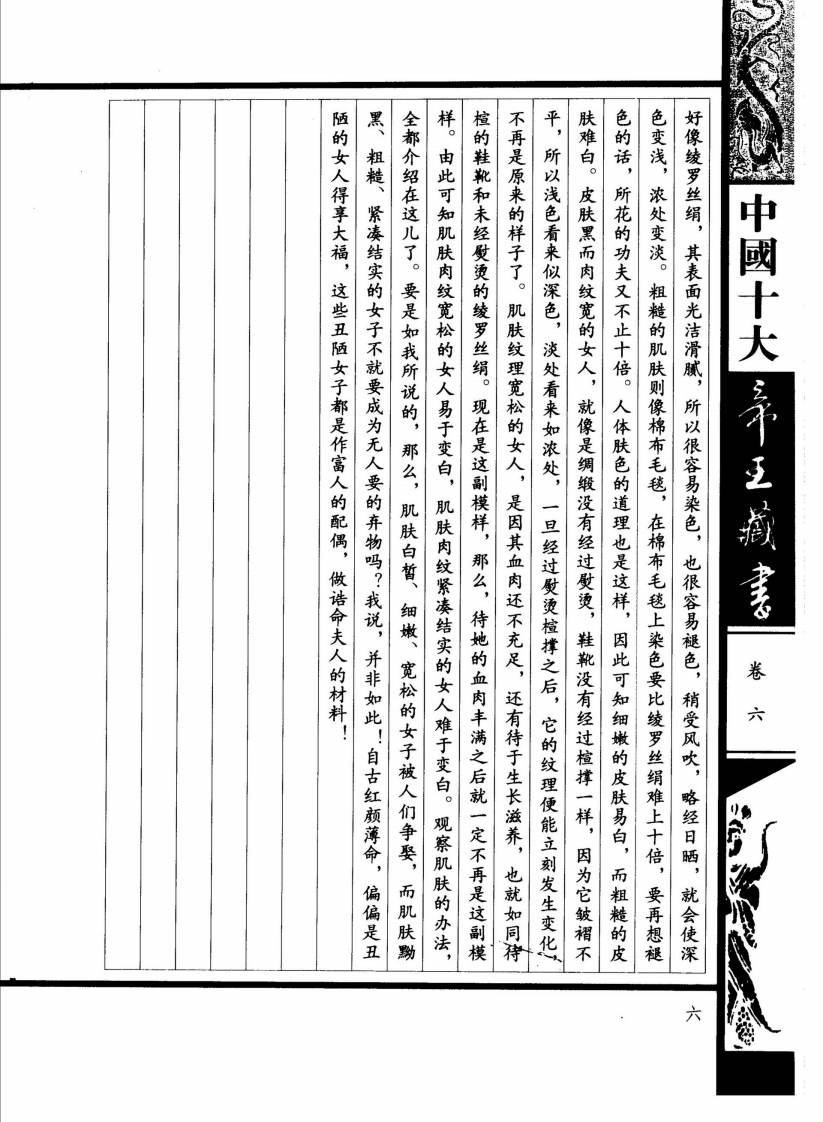 中國十大
帝王藏書
卷六
好像绫罗丝绢，其表面光洁滑腻，所以很容易染色，也很容易褪色，稍受风吹，略经日晒，就会使深
色变浅，浓处变淡。粗糙的肌肤则像棉布毛毯，在棉布毛毯上染色要比绫罗丝绢难上十倍，要再想褪
色的话，所花的功夫又不止十倍。人体肤色的道理也是这样，因此可知细嫩的皮肤易白，而粗糙的皮
肤难白。皮肤黑而肉纹宽的女人，就像是绸缎没有经过熨烫，鞋靴没有经过楦撑一样，因为它皱褶不
平，所以浅色看来似深色，淡处看来如浓处，一旦经过熨烫楦撑之后，它的纹理便能立刻发生变化，
不再是原来的样子了。肌肤纹理宽松的女人，是因其血肉还不充足，还有待于生长滋养，也就如同待
楦的鞋靴和未经熨烫的绫罗丝绢。现在是这副模样，那么，待她的血肉丰满之后就一定不再是这副模
样。由此可知肌肤肉纹宽松的女人易于变白，肌肤肉纹紧凑结实的女人难于变白。观察肌肤的办法，
全都介绍在这儿了。要是如我所说的，那么，肌肤白皙、细嫩、宽松的女子被人们争娶，而肌肤黝
黑、粗糙、紧凑结实的女子不就要成为无人要的弃物吗？我说，并非如此！自古红颜薄命，偏偏是丑
陋的女人得享大福，这些丑陋女子都是作富人的配偶，做诰命夫人的材料！
六